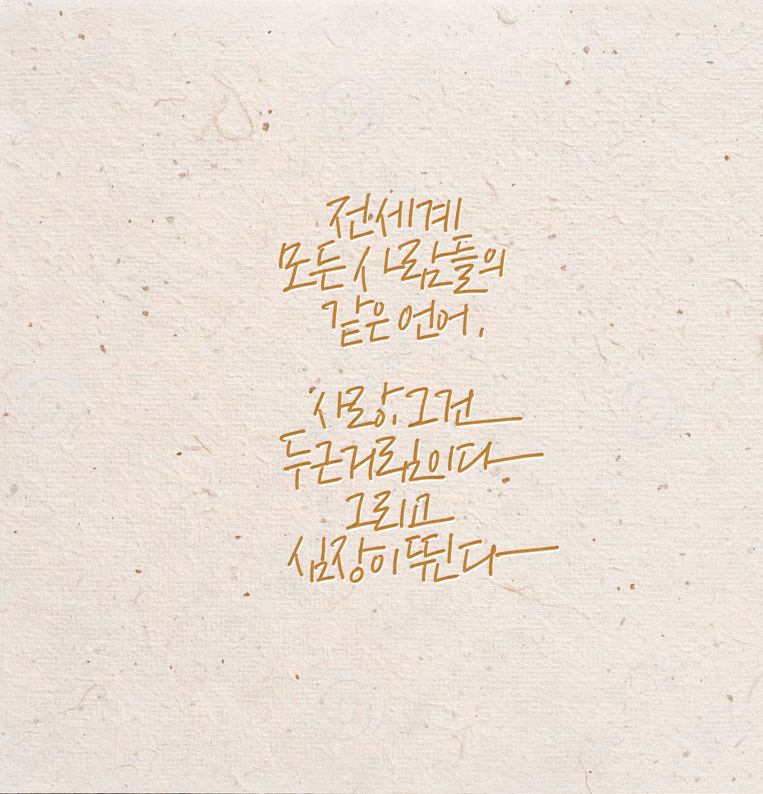 전세계
모든 사람들의
같은 언어,
사랑, 그건
두근거림이다
그리고
심장이 뛴다